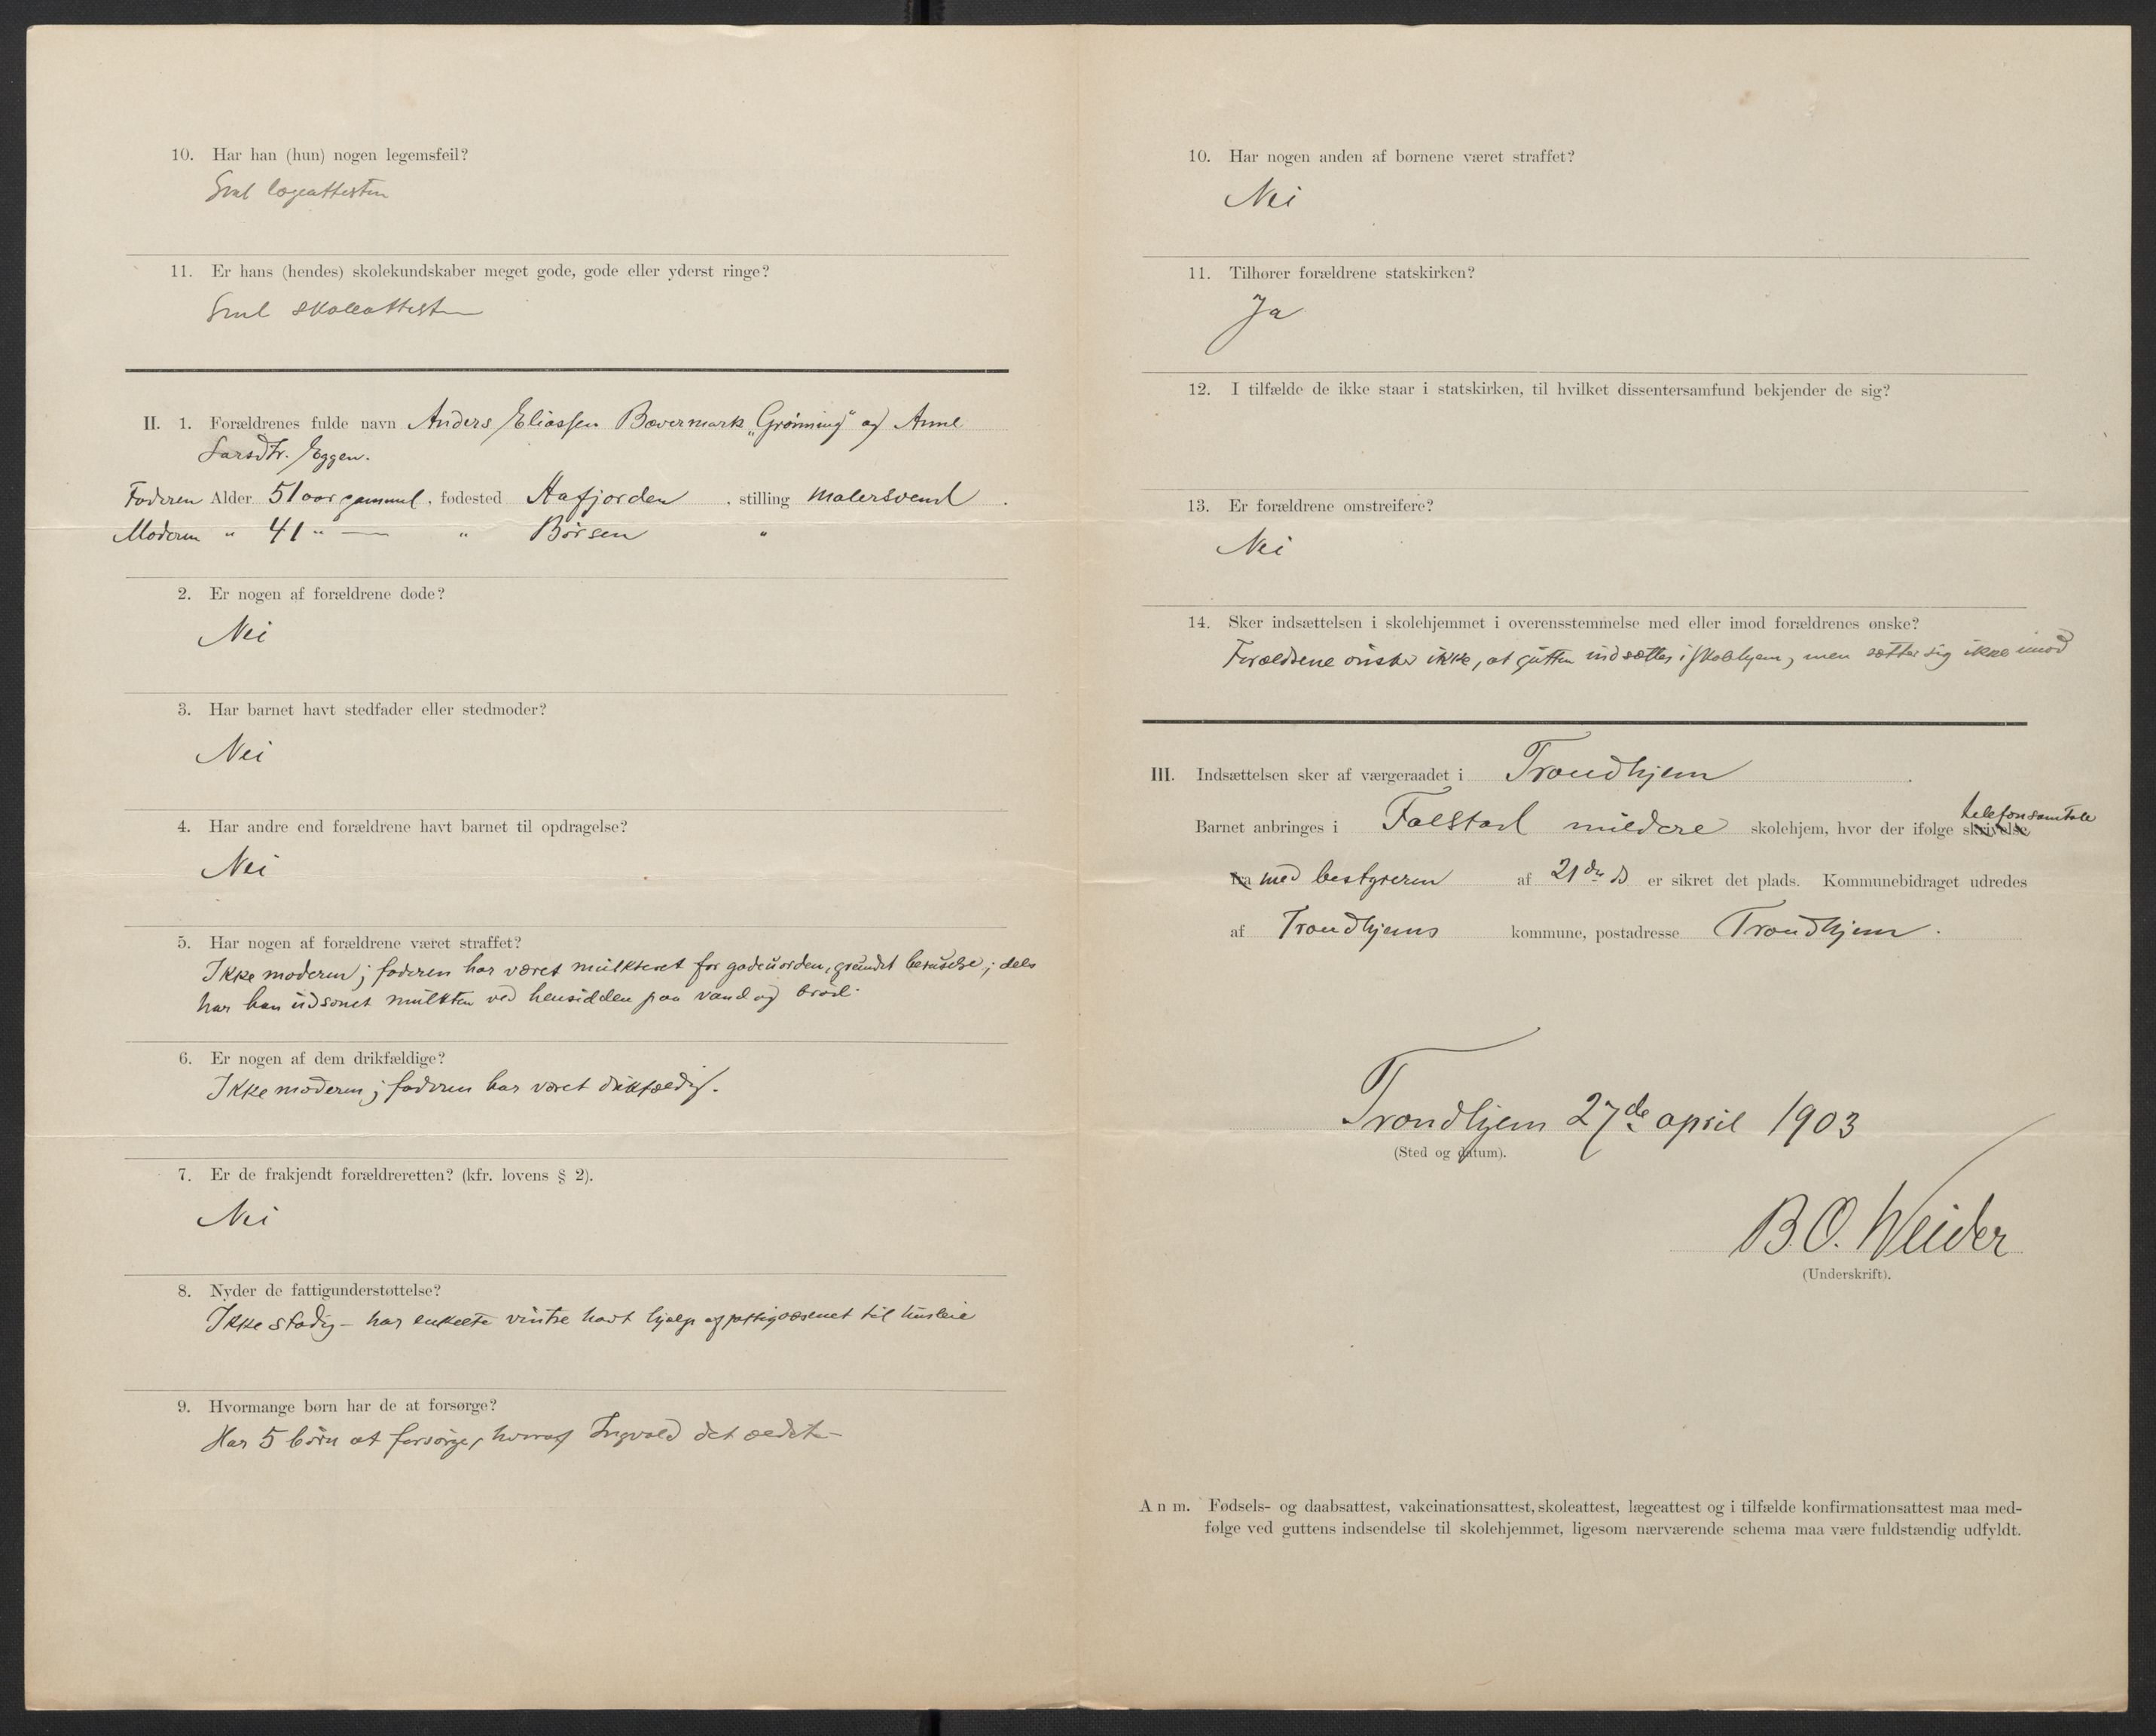 10. Har han (hun) nogen legemsfeil?
Se lægeattesten
11. Er hans (hendes) skolekundskaber meget gode, gode eller yderst ringe?
skoleattesten
II. 1. Forældrenes fulde navn Anders Eliassen Bævermark „Grønning“ og Anne
Larsdtr. Eggen.
Faderen Alder 51 aar gammel, fødested Aafjorden, stilling malersvend.
Moderen " 41 " — " Børsen "
2. Er nogen af forældrene døde?
Nei
3. Har barnet havt stedfader eller stedmoder?
Nei
4. Har andre end forældrene havt barnet til opdragelse?
Nei
5. Har nogen af forældrene været straffet?
Ikke moderen; faderen har været mulkteret for gadeuorden, grundet beruselse; dels
har han udsonet mulkten ved hensidden paa vand og brød.
6. Er nogen af dem drikfældige?
Ikke moderen; faderen har været drikfældig.
7. Er de frakjendt forældreretten? (kfr. lovens § 2).
Nei
8. Nyder de fattigunderstøttelse?
Ikke stadig – har enkelte vintre havt hjælp af fattigvæsenet til husleie
9. Hvormange børn har de at forsørge?
Har 5 børn at forsørge, hvoraf Ingvald det ældste
10. Har nogen anden af børnene været straffet?
Nei
11. Tilhører forældrene statskirken?
Ja
12. I tilfælde de ikke staar i statskirken, til hvilket dissentersamfund bekjender de sig?
13. Er forældrene omstreifere?
Nei
14. Sker indsættelsen i skolehjemmet i overensstemmelse med eller imod forældrenes ønske?
Forældrene ønsker ikke, at gutten indsættes i skolehjem, men sætter sig ikke imod
III. Indsættelsen sker af værgeraadet i Trondhjem.
Barnet anbringes i Falstad mildere skolehjem, hvor der ifølge skrivelse telefonsamtale
fra med bestyreren af 21de ds er sikret det plads. Kommunebidraget udredes
af Trondhjems kommune, postadresse Trondhjem.
Trondhjem 27de april 1903
(Sted og datum).
B.O. Weider
(Underskrift).
Anm. Fødsels- og daabsattest, vakcinationsattest, skoleattest, lægeattest og i tilfælde konfirmationsattest maa med-
følge ved guttens indsendelse til skolehjemmet, ligesom nærværende schema maa være fuldstændig udfyldt.